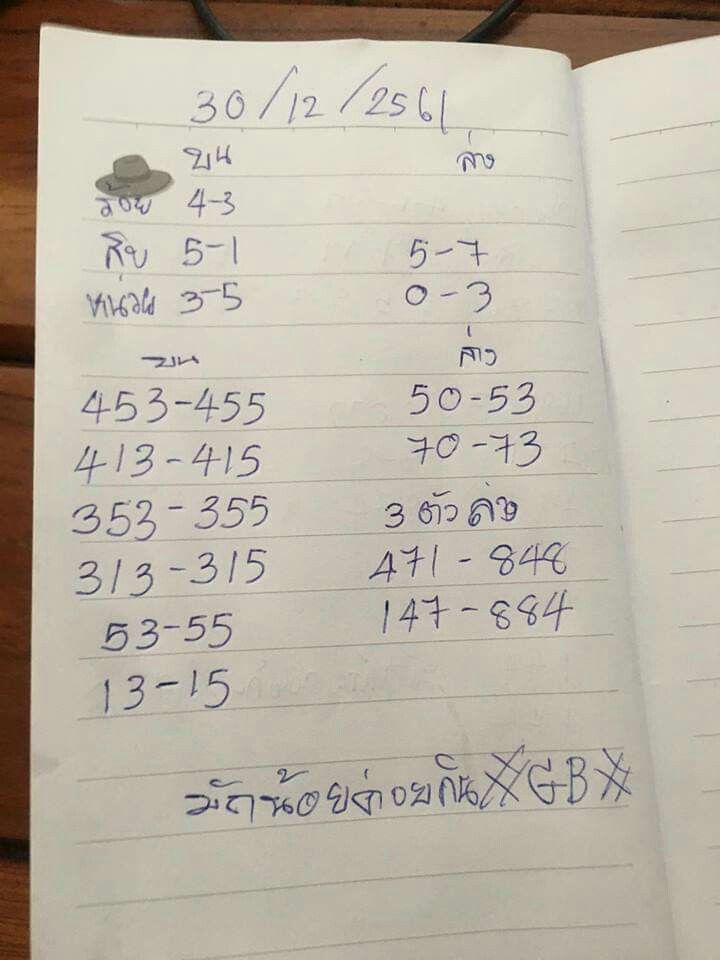 30/12/2561
บน ล่าง
ร้อย 4-3
สิบ 5-1 5-7
หน่วย 3-5 0-3
บน ล่าง
453-455 50-53
413-415 70-73
353-355 3 ตัวล่าง
313-315 471-848
53-55 147-884
13-15
GB